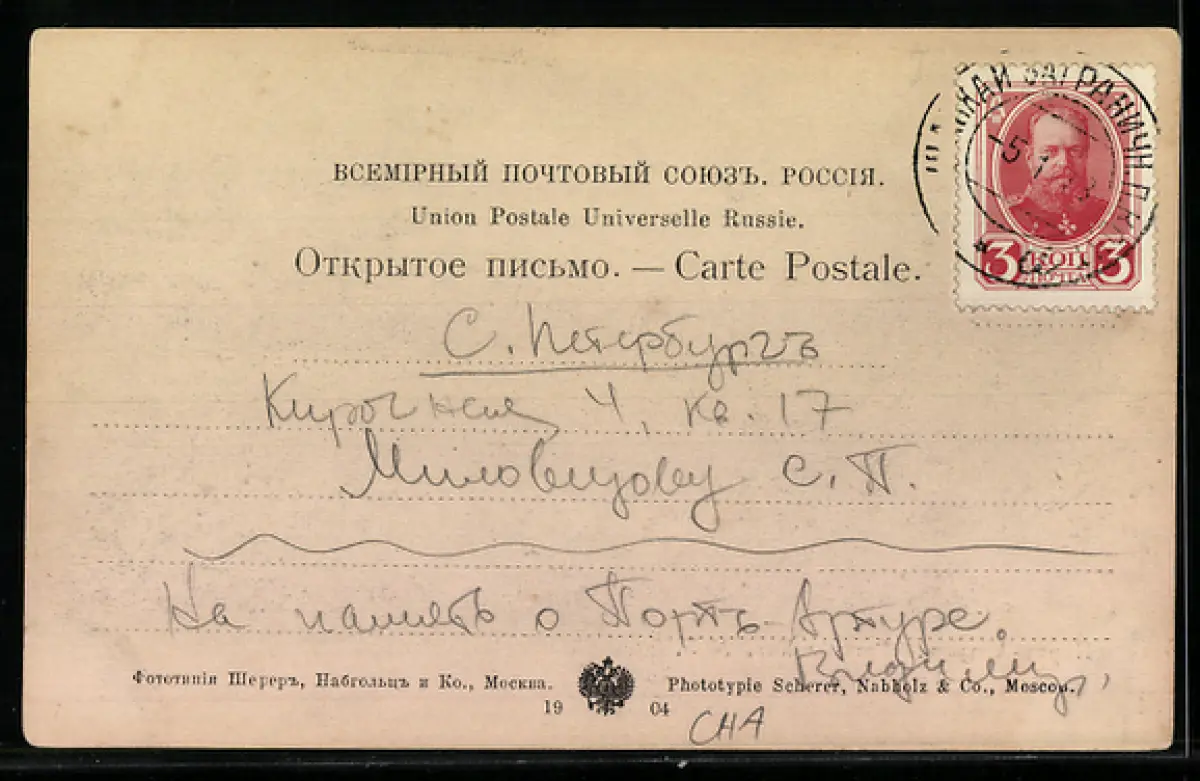 ВСЕМІРНЫЙ ПОЧТОВЫЙ СОЮЗЪ. РОССІЯ.
Union Postale Universelle Russie.
Открытое письмо. — Carte Postale.
ЗАГРАНИЧН. П. К.
5
3 КОП 3
С. Петербургъ
Кирочная 4, кв. 17
Миловидову С. П.
На память о Портъ-Артуре.
Владимир
Фототипія Шереръ, Набгольцъ и Ко., Москва.
Phototypie Scherer, Nabholz & Co., Moscou.
19 04
CHA